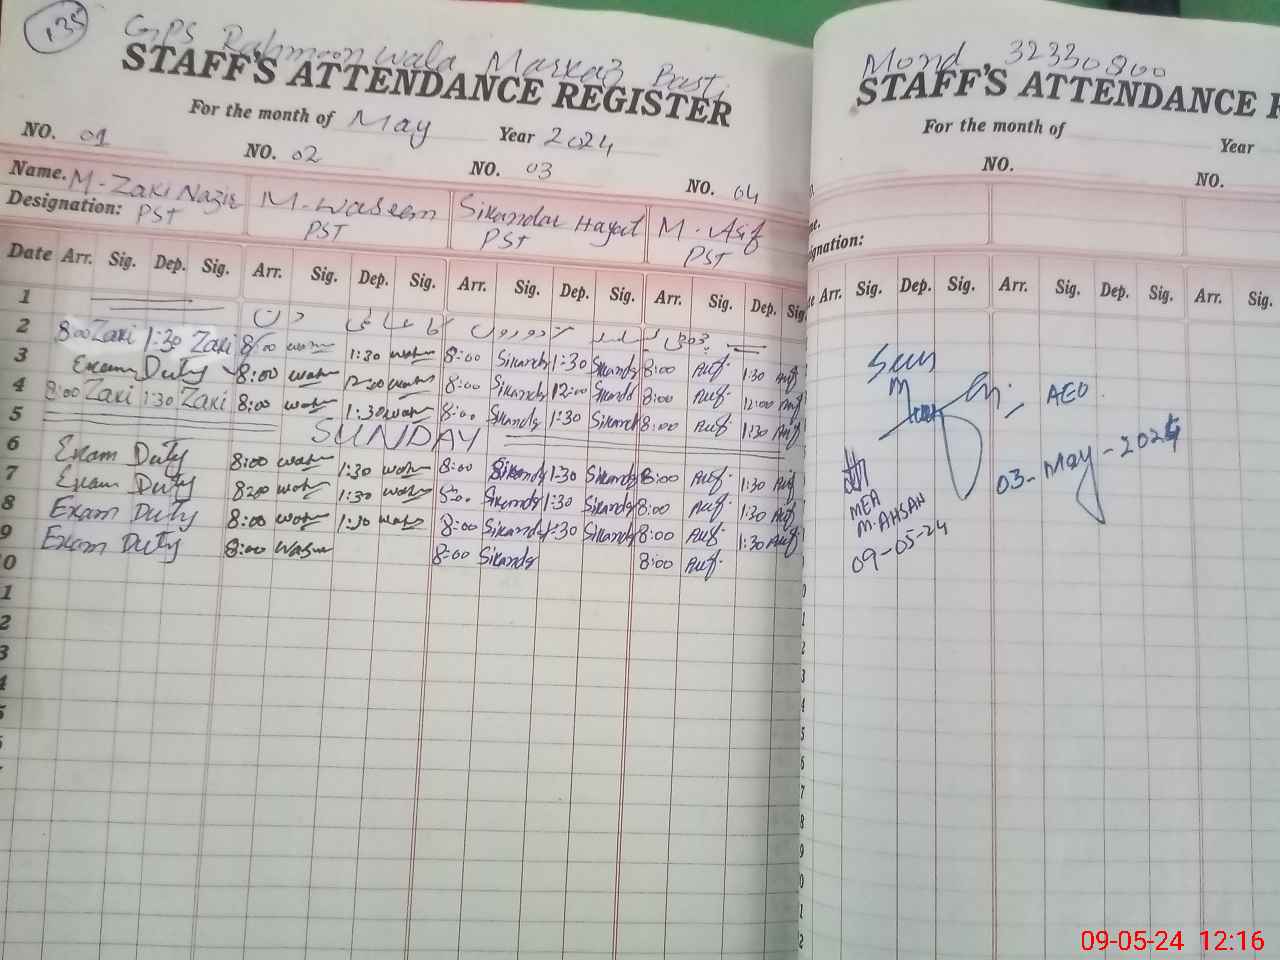 135
GPS Rahmoon Wala Markaz Basti
STAFF'S ATTENDANCE REGISTER
For the month of May Year 2024
NO. 01 NO. 02 NO. 03 NO. 04
Name. M-Zaki Nazir M-Waseem Sikandar Hayat M-Asif
Designation: PST PST PST PST
Date Arr. Sig. Dep. Sig. Arr. Sig. Dep. Sig. Arr. Sig. Dep. Sig. Arr. Sig. Dep. Sig.
1
2 8:00 Zaki 1:30 Zaki 8:00 1:30 8:00 Sikandr 1:30 Sikandr 8:00 Asif 1:30 Asif
3 Exam Duty 8:00 12:00 8:00 Sikandr 12:00 Sikandr 8:00 Asif 12:00 Asif
4 8:00 Zaki 1:30 Zaki 8:00 1:30 8:00 Sikandr 1:30 Sikandr 8:00 Asif 1:30 Asif
5 SUNDAY
6 Exam Duty 8:00 1:30 8:00 Sikandr 1:30 Sikandr 8:00 Asif 1:30 Asif
7 Exam Duty 8:00 1:30 Sikandr 1:30 Sikandr 8:00 Asif 1:30 Asif
8 Exam Duty 8:00 1:30 8:00 Sikandr 1:30 Sikandr 8:00 Asif 1:30 Asif
9 Exam Duty 8:00 8:00 Sikandr 8:00 Asif
0
1
2
3
4
5
Mond 32330800
STAFF'S ATTENDANCE R
For the month of Year
NO. NO.
me.
ignation:
te Arr. Sig. Dep. Sig. Arr. Sig. Dep. Sig. Arr. Sig.
Seen
AEO
03-May-2024
MEA
M-AHSAN
09-05-24
0
1
2
3
4
5
6
7
8
9
0
1
2
09-05-24 12:16